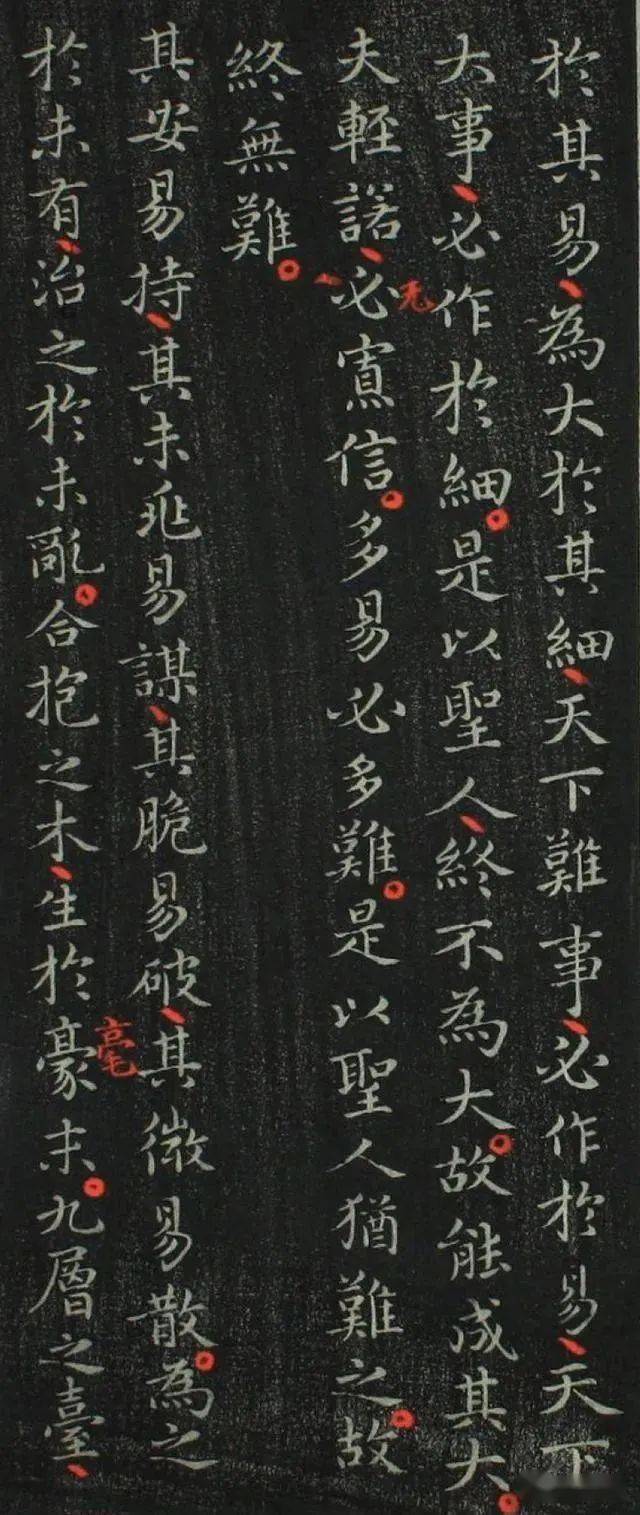 於其易、為大於其細、天下難事、必作於易、天下
大事、必作於細。是以聖人、終不為大。故能成其大。
无
夫輕諾、必寡信。多易必多難。是以聖人猶難之。故
終無難。
其安易持、其未兆易謀、其脆易破、其微易散。為之
毫
於未有、治之於未亂。合抱之木、生於豪末。九層之臺、